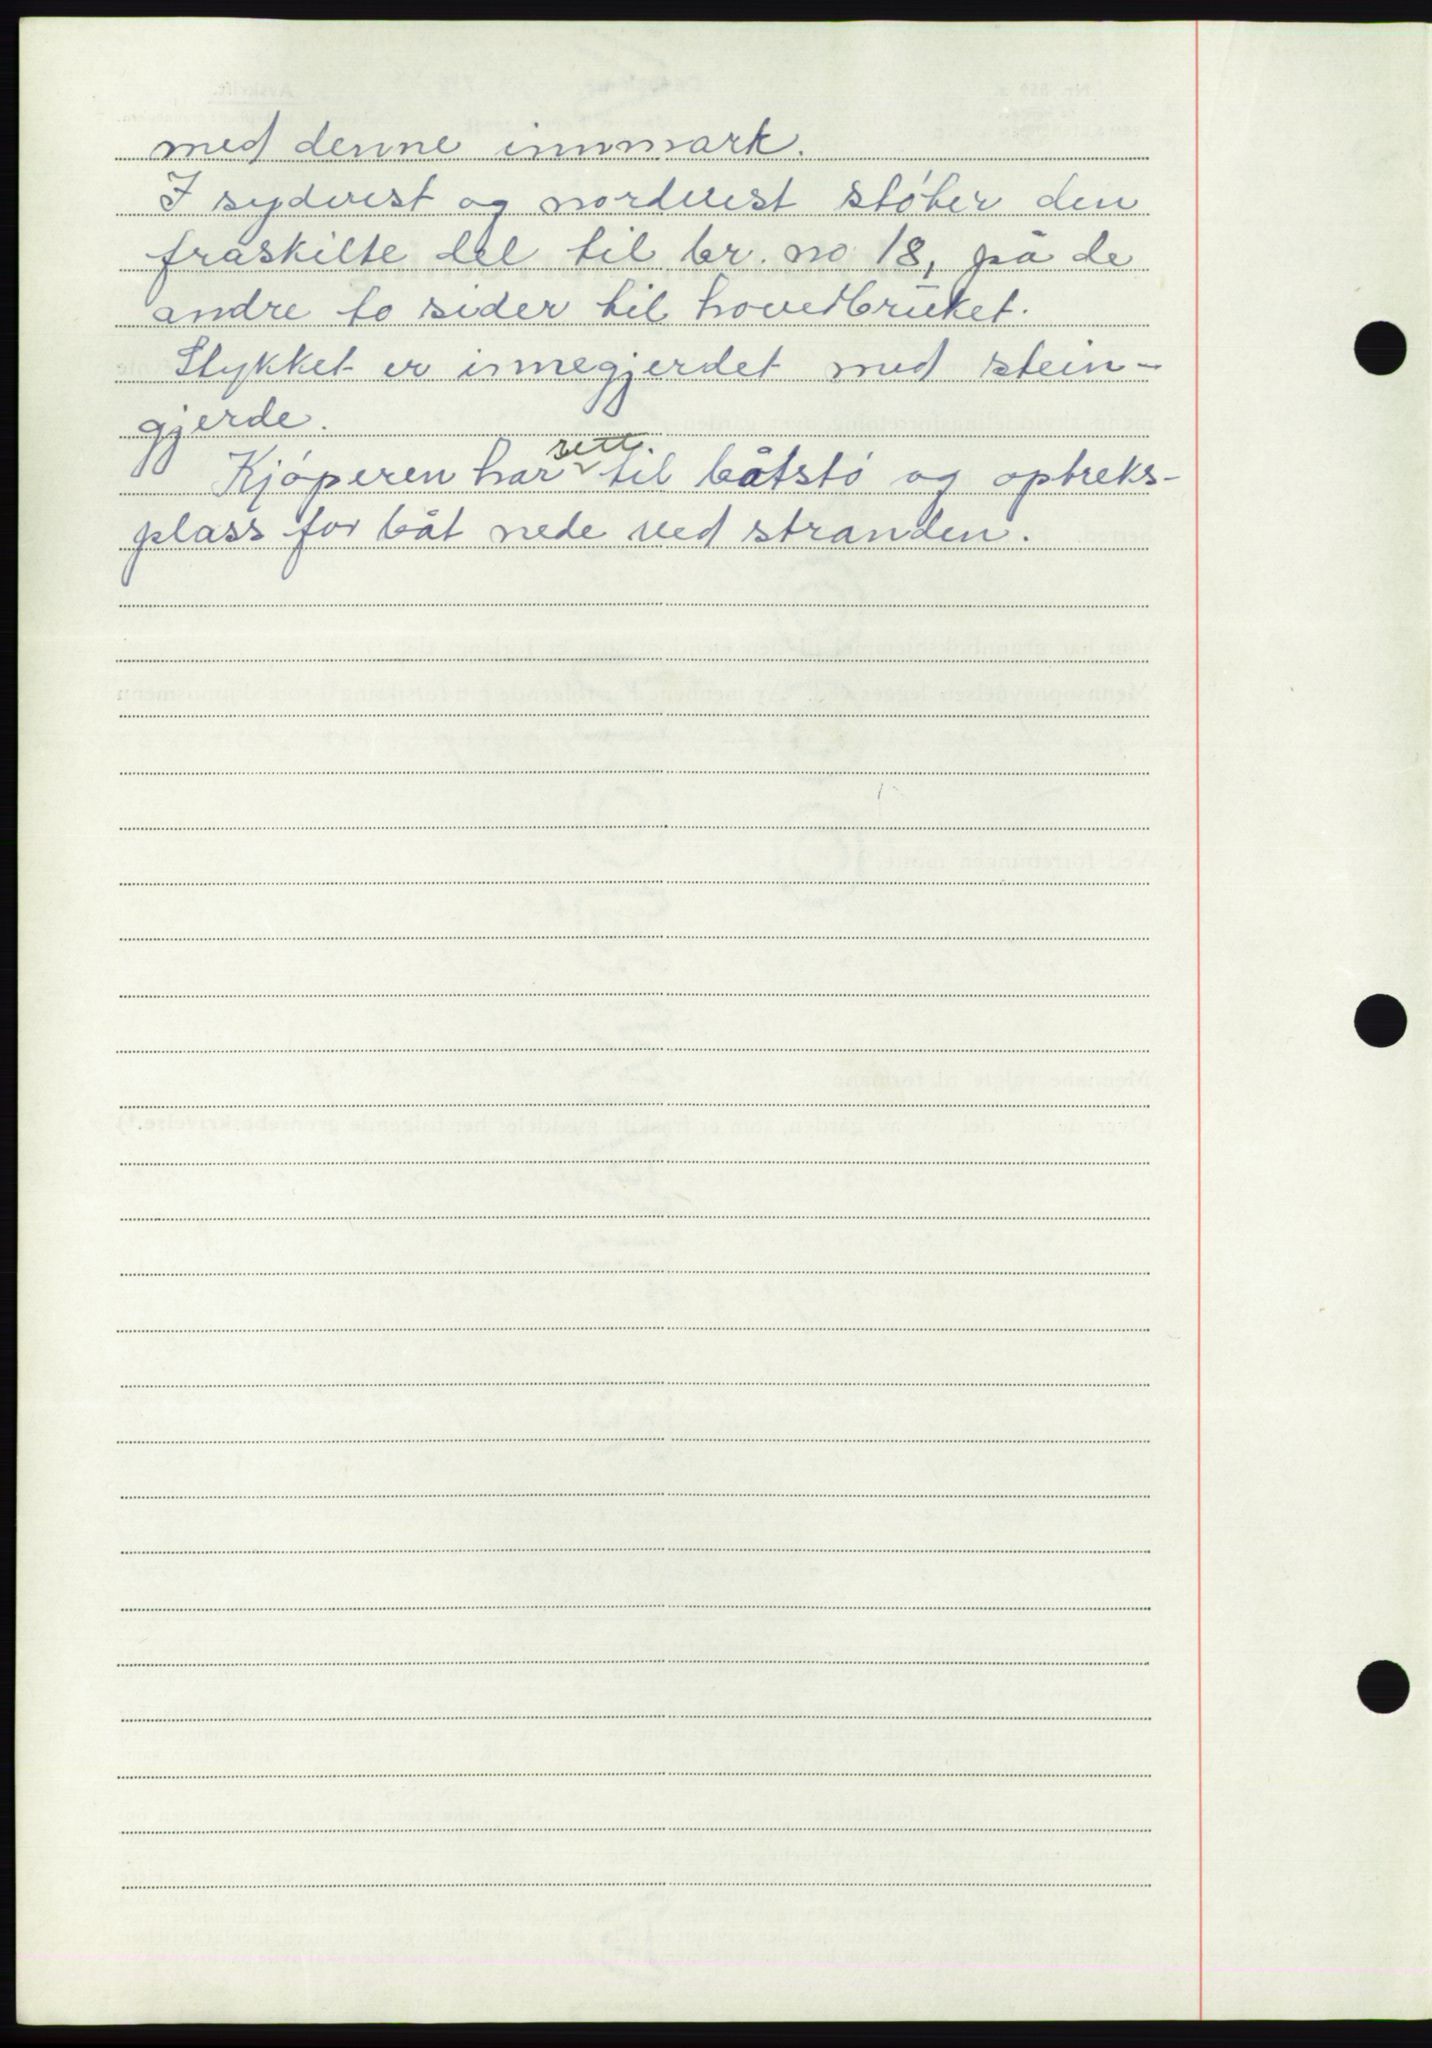 med denne innmark.
I sydvest og nordvest støter den
fraskilte del til br. no 18, på de
andre to sider til hovedbruket.
Stykket er innegjerdet med stein-
gjerde.
sett
Kjøperen har til båtstø og optreks-
plass for båt nede ved stranden.